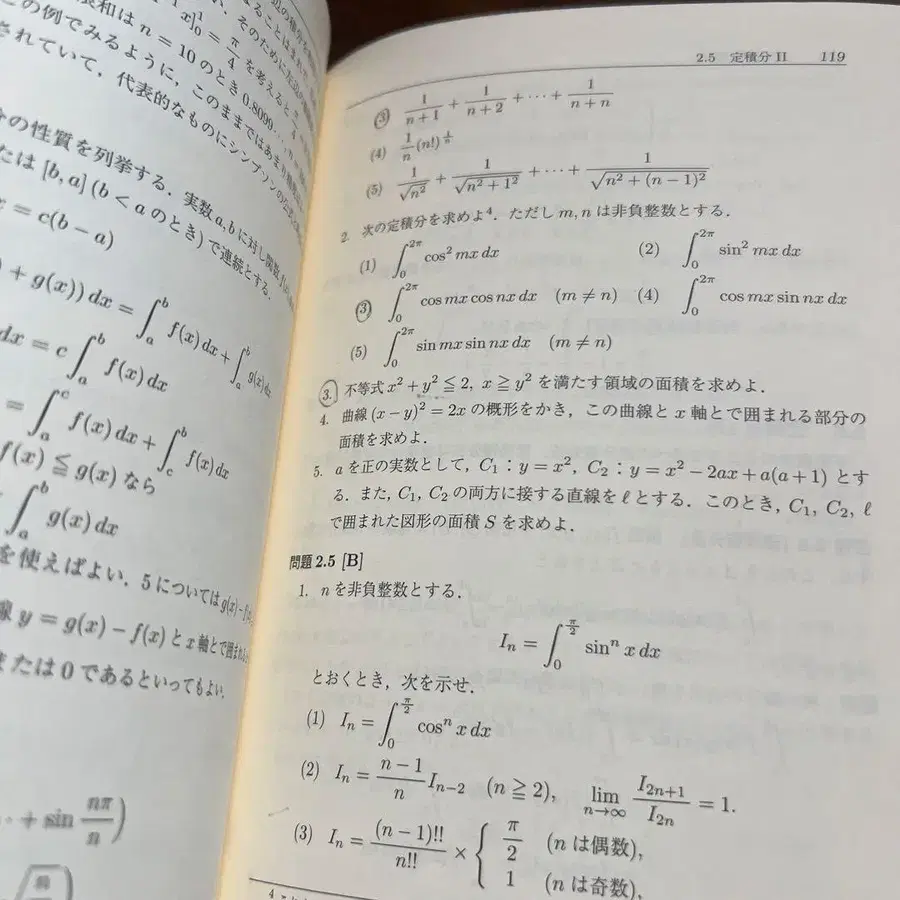 x]₀¹ = π/4 を考えると
表和は n = 10 のとき 0.8099…,
この例でみるように, このままではあまり
されていて, 代表的なものにシンプソンの
分の性質を列挙する. 実数 a, b に対し関数
たは [b, a] (b < a のとき) で連続とする.
= c(b − a)
+ g(x)) dx = ∫_a^b f(x) dx + ∫_a^b g(x) dx
dx = c ∫_a^b f(x) dx
= ∫_a^c f(x) dx + ∫_c^b f(x) dx
f(x) ≦ g(x) なら
∫_a^b g(x) dx
を使えばよい. 5 については
線 y = g(x) − f(x) と x 軸とで
または 0 であるといってもよい.
+ sin nπ/n)
2.5 定積分 II 119
(3) 1/(n+1) + 1/(n+2) + ··· + 1/(n+n)
(4) 1/n (n!)^{1/n}
(5) 1/√(n²) + 1/√(n² + 1²) + ··· + 1/√(n² + (n − 1)²)
2. 次の定積分を求めよ⁴. ただし m, n は非負整数とする.
(1) ∫_0^{2π} cos² mx dx (2) ∫_0^{2π} sin² mx dx
(3) ∫_0^{2π} cos mx cos nx dx (m ≠ n) (4) ∫_0^{2π} cos mx sin nx dx
(5) ∫_0^{2π} sin mx sin nx dx (m ≠ n)
3. 不等式 x² + y² ≦ 2, x ≧ y² を満たす領域の面積を求めよ.
4. 曲線 (x − y)² = 2x の概形をかき, この曲線と x 軸とで囲まれる部分の
面積を求めよ.
5. a を正の実数として, C₁ : y = x², C₂ : y = x² − 2ax + a(a + 1) とす
る. また, C₁, C₂ の両方に接する直線を ℓ とする. このとき, C₁, C₂, ℓ
で囲まれた図形の面積 S を求めよ.
問題 2.5 [B]
1. n を非負整数とする.
I_n = ∫_0^{π/2} sinⁿ x dx
とおくとき, 次を示せ.
(1) I_n = ∫_0^{π/2} cosⁿ x dx
(2) I_n = (n − 1)/n I_{n−2} (n ≧ 2), lim_{n→∞} I_{2n+1}/I_{2n} = 1.
(3) I_n = (n − 1)!!/n!! × { π/2 (n は偶数),
1 (n は奇数),